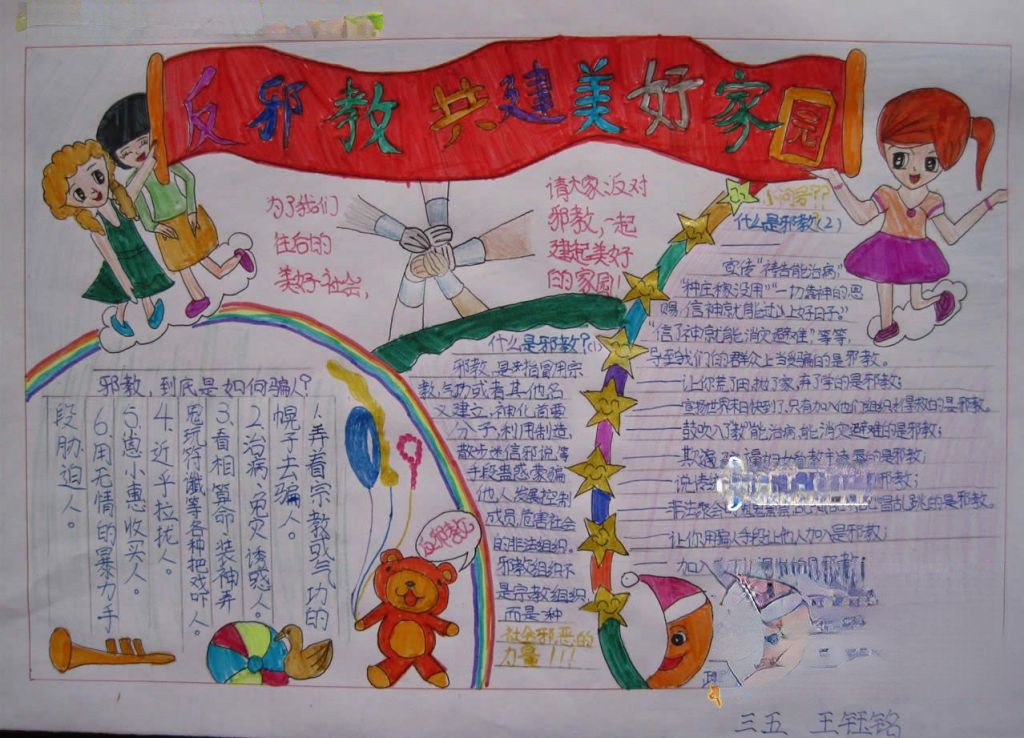 反邪教 共建美好家园
为了我们
往后的
美好社会,
请大家反对
邪教,一起
建起美好
的家园!
什么是邪教?(1)
邪教,是指冒用宗
教,气功或者其他名
义建立,神化首要
分子,利用制造,
散步迷信邪说,等
手段蛊惑,蒙骗
他人,发展控制
成员,危害社会
的非法组织。
邪教组织不
是宗教组织
而是一种
社会邪恶的
力量!!!
什么是邪教(2)
宣传“祷告能治病,”
“种庄稼没用”“一切靠神的恩
赐,信神就能过以上好日子。”
“信了神就能消灾避难”等等,
导至我们的群众上当受骗的是邪教。
——让你荒了田,抛了家,弃了学的是邪教;
——宣扬世界末日快到了,只有加入他们组织才是救的是邪教。
——鼓吹入了教“能治病,能消灾避难的是邪教;
——欺
邪教;
——说
邪教;
——非法聚会
的是邪教。
——让你用骗人手段让他人加入是邪教;
——加入
邪教,到底是如何骗人?
1.弄着宗教或气功的
幌子去骗人。
2.治病,免灾诱惑人。
3.看相算命,装神弄
鬼玩符谶等各种把戏吓人。
4.近乎拉拢人。
5.崽小惠收买人。
6.用无情的暴力手
段胁迫人。
反邪教
三五 王钰铭